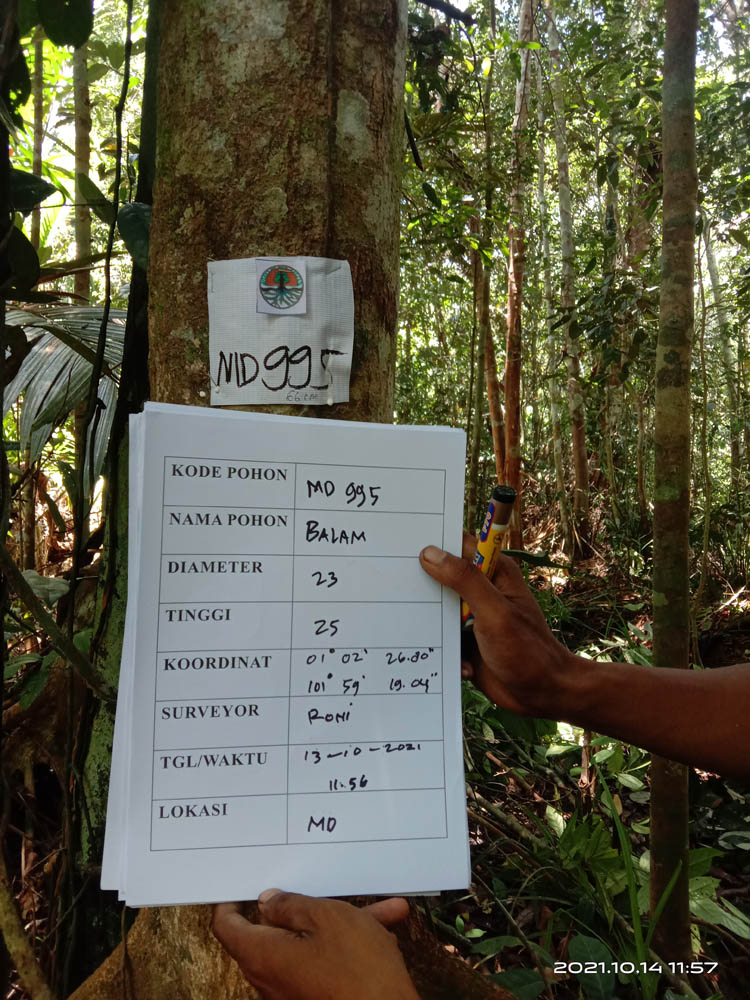 MD 995
66 cm
KODE POHON MD 995
NAMA POHON BALAM
DIAMETER 23
TINGGI 25
KOORDINAT 01° 02' 26.80"
101° 59' 19.04"
SURVEYOR RONI
TGL/WAKTU 13-10-2021
11.56
LOKASI MD
2021.10.14 11:57